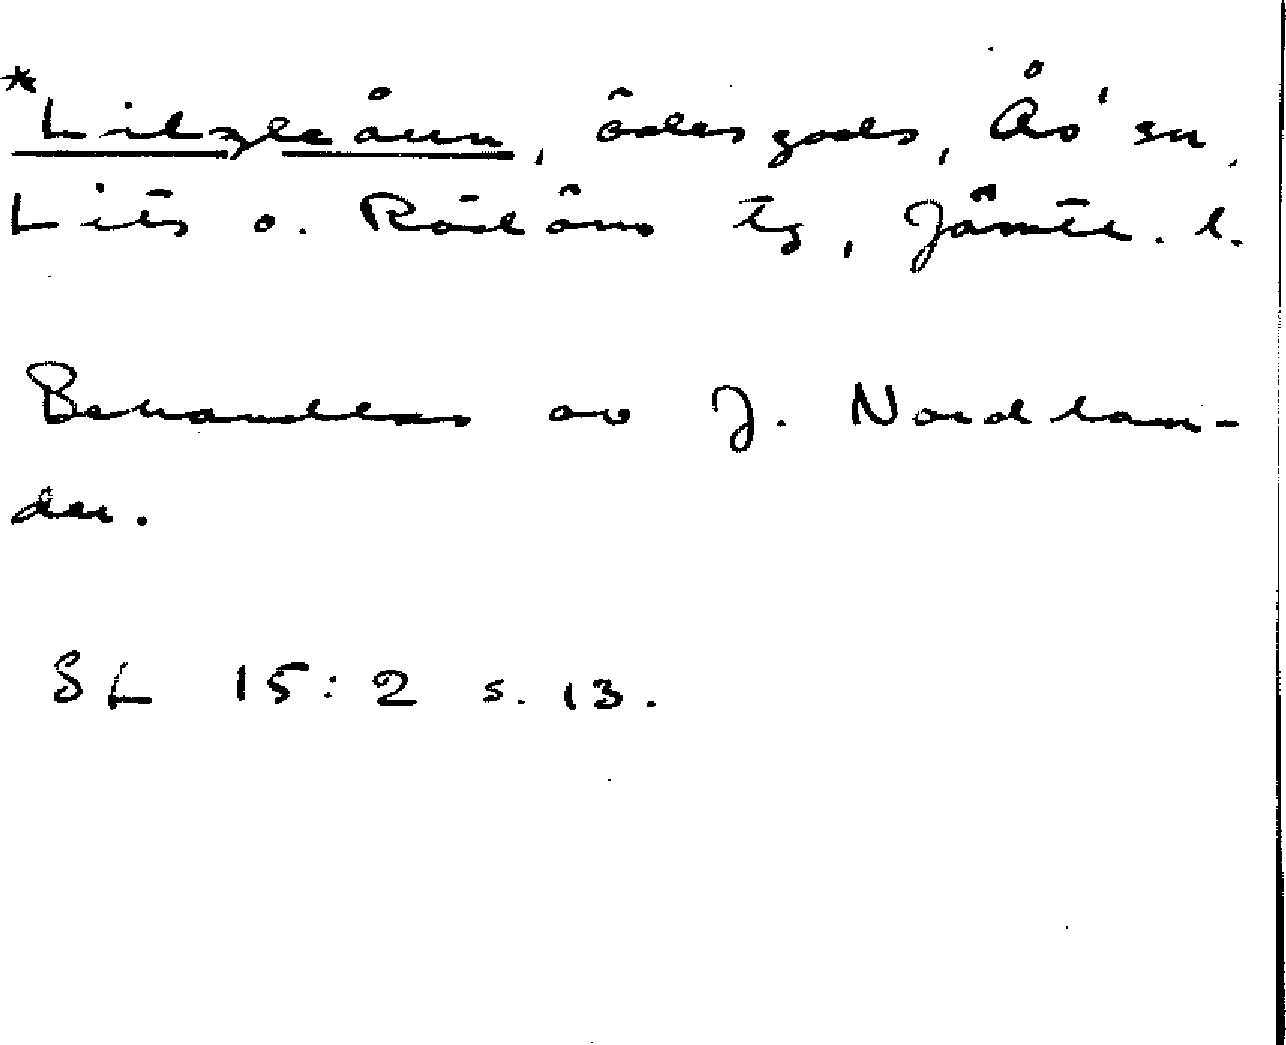 * , ödesgods, Ås' sn,
Lits o. Rödöns tg, Jämtl. l.
Behandlas av J. Nordlan-
der.
SL 15:2 s. 13.